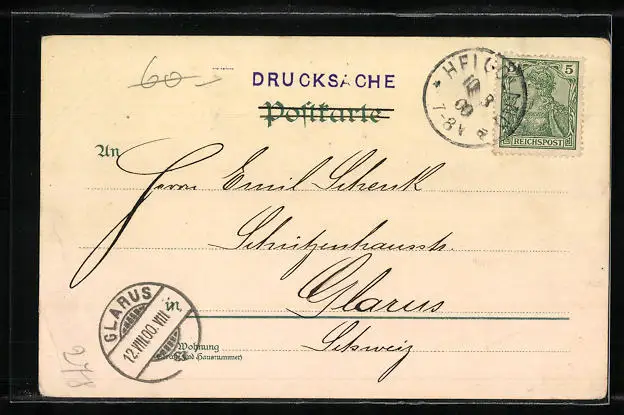 60.-
DRUCKSACHE
Postkarte
* HELGOLAND
10 8
00
7-8V
5
REICHSPOST
An
Herrn Emil Schenk
Schützenhausstr.
GLARUS
12.VIII.00.VIII
in
Glarus
Wohnung
(Straße und Hausnummer)
Schweiz
278